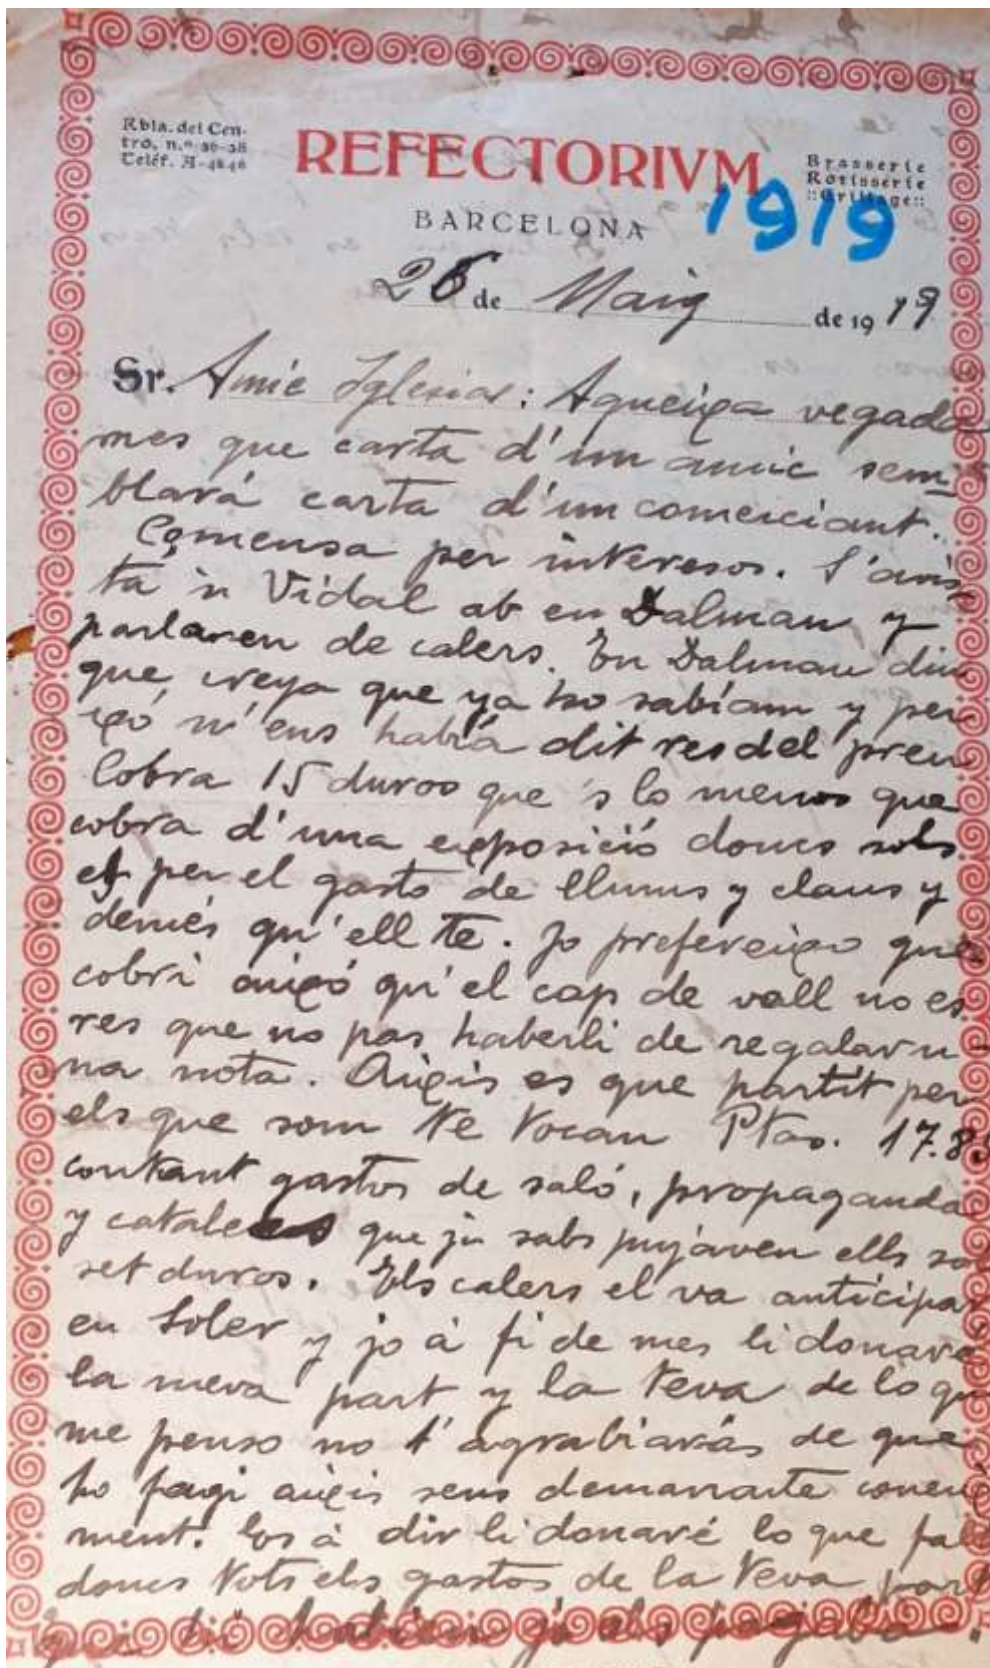 Rbla. del Cen-
tro, n.º 36-38
Teléf. A-4846
REFECTORIVM
BARCELONA
Brasserie
Rotisserie
::Grillage::
1919
26 de Maig de 1919
Sr. Amic Iglesias: Aqueixa vegada
mes que carta d'un amic sem-
blará carta d'un comerciant.
Comensa per interesos. S'avis-
tá 'n Vidal ab en Dalmau y
parlaren de calers. En Dalmau diu
que creya que ya ho sabíam y per
xó n'ens había dit res del preu
Cobra 15 duros que 's lo menos que
cobra d'una exposició doncs sols
es per el gasto de llums y claus y
demés qu'ell te. Jo prefereixo que
cobri aixó qu'el cap de vall no es
res que no pas haberli de regalar u-
na nota. Aixis es que partit per
els que som te tocan Ptas. 17.85
contant gastos de saló, propaganda
y catalecs que ja sabs pujaven ells
set duros. Els calers el va anticipar
en Soler y jo á fi de mes li donaré
la meva part y la teva de lo que
me penso no t'agrabiarás de que
ho fagi aixis sens demanarte
ment. Es á dir li donaré lo que
doncs tots els gastos de la teva part
que hi ja els